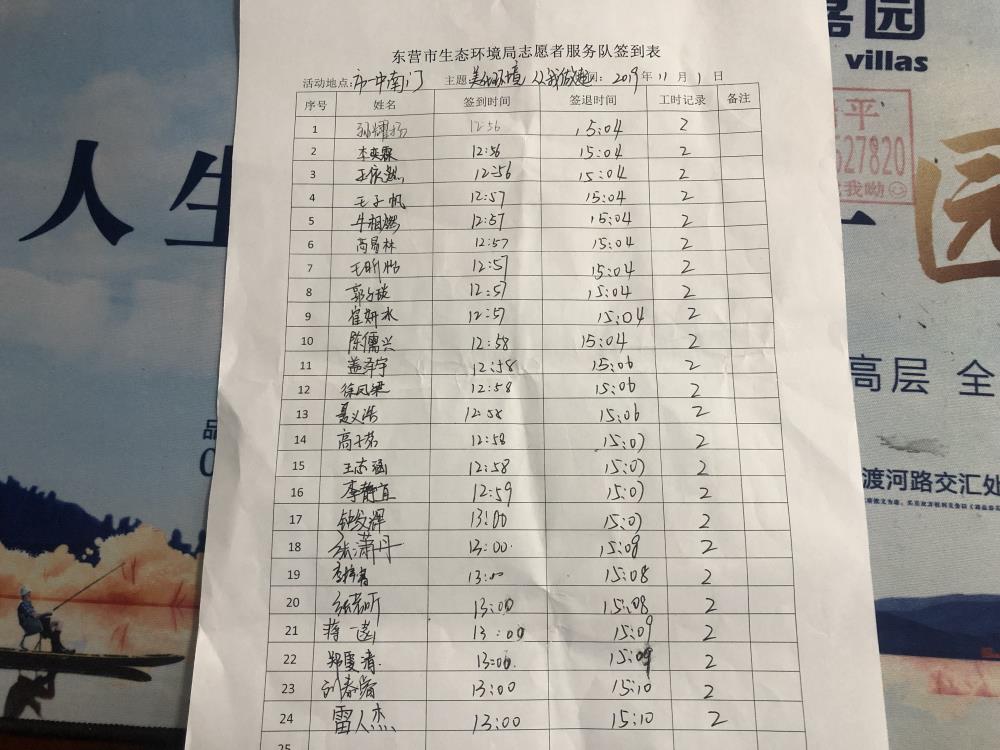 东营市生态环境局志愿者服务队签到表
活动地点：市一中南门 主题 美化环境，从我做起 间：2019年11月1日
序号 姓名 签到时间 签退时间 工时记录 备注
1 孙耀扬 12:56 15:04 2
2 李奕霖 12:56 15:04 2
3 12:56 15:04 2
4 王子帆 12:57 15:04 2
5 牛相燃 12:57 15:04 2
6 12:57 15:04 2
7 王昕怡 12:57 15:04 2
8 12:57 15:04 2
9 崔妍水 12:57 15:04 2
10 陈儒兴 12:58 15:04 2
11 盖泽宇 12:58 15:06 2
12 徐凤梁 12:58 15:06 2
13 聂义浩 12:58 15:06 2
14 高子茗 12:58 15:07 2
15 12:58 15:07 2
16 李静宜 12:59 15:07 2
17 13:00 15:07 2
18 张潇丹 13:00 15:09 2
19 13:00 15:08 2
20 13:00 15:08 2
21 13:00 15:09 2
22 郑夏清 13:00 15:09 2
23 13:00 15:10 2
24 雷人杰 13:00 15:10 2
25
人生
园
villas
平
527820
我呦
园
高层 全
渡河路交汇处
品
0